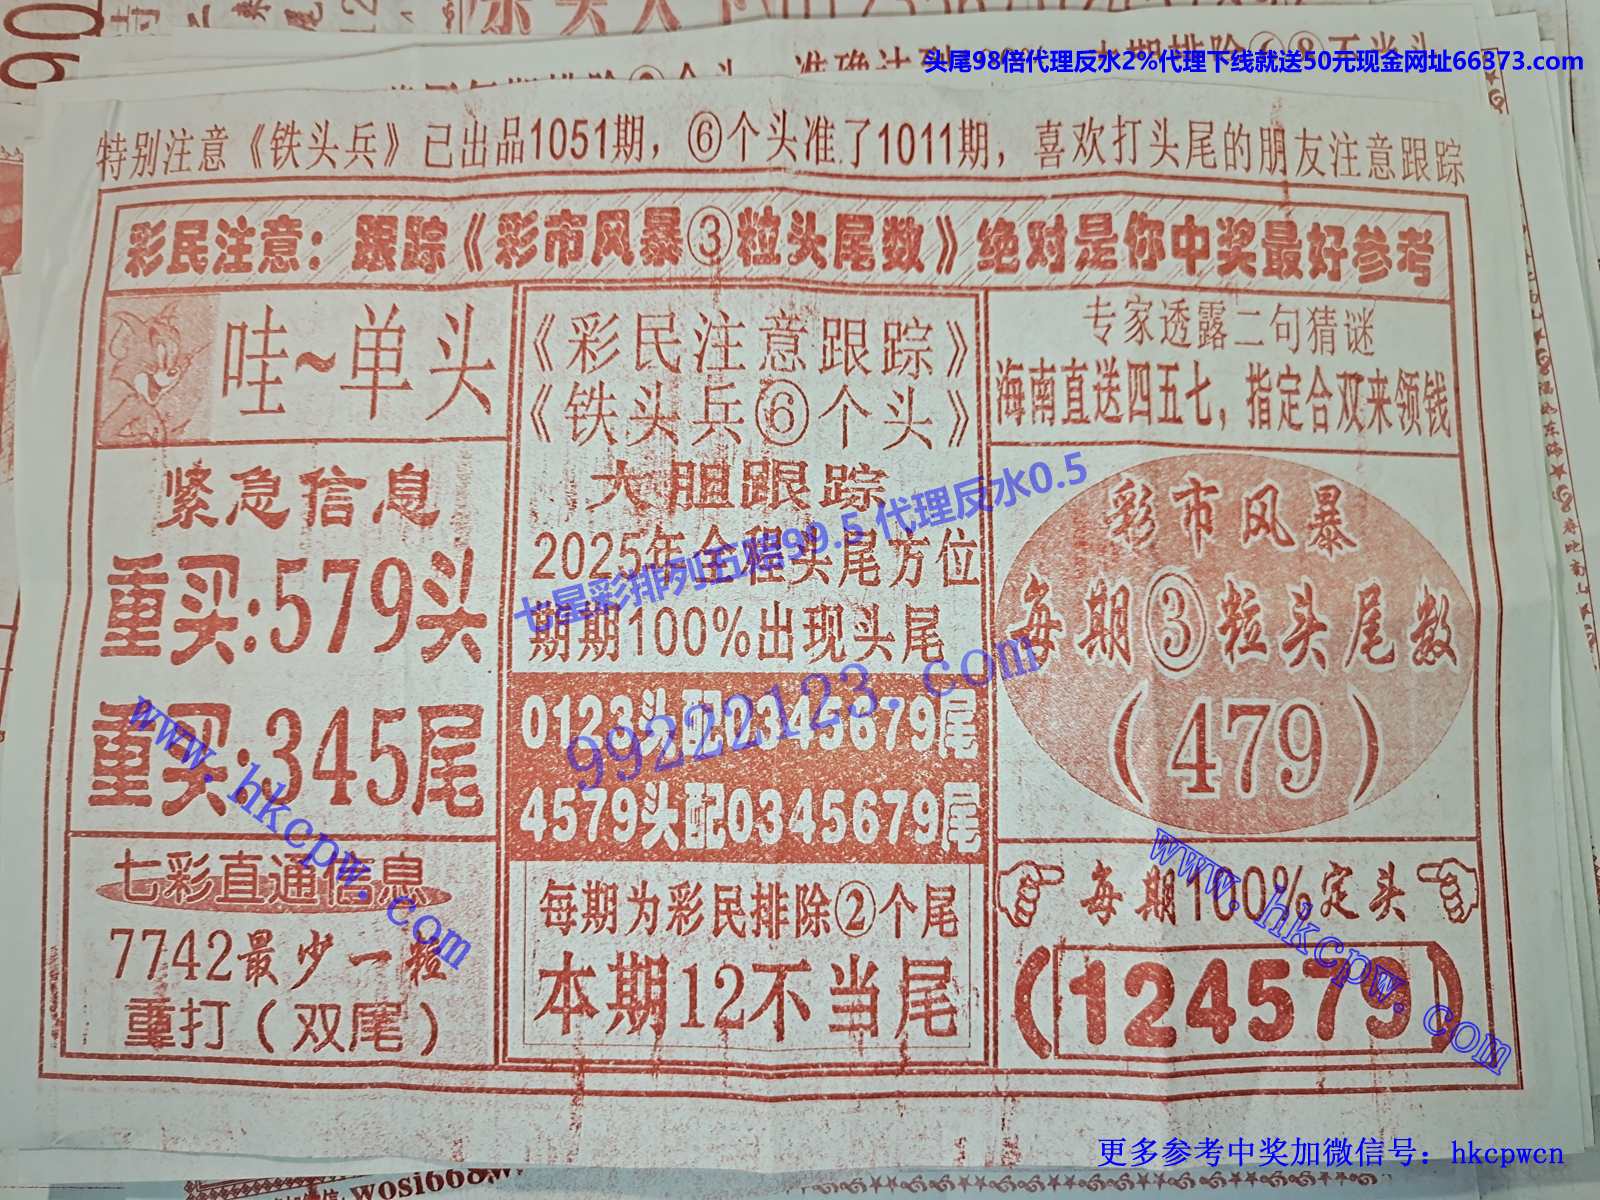 头尾98倍代理反水2%代理下线就送50元现金网址66373.com
特别注意《铁头兵》已出品1051期，⑥个头准了1011期，喜欢打头尾的朋友注意跟踪
彩民注意：跟踪《彩市风暴③粒头尾数》绝对是你中奖最好参考
哇~单头
紧急信息
重买:579头
重买:345尾
七彩直通信息
7742最少一粒
重打（双尾）
《彩民注意跟踪》
《铁头兵⑥个头》
大胆跟踪
2025年全程头尾方位
期期100%出现头尾
0123头配02345679尾
4579头配0345679尾
每期为彩民排除②个尾
本期12不当尾
专家透露二句猜谜
海南直送四五七，指定合双来领钱
彩市风暴
每期③粒头尾数
（479）
每期100%定头
（124579）
七星彩排列五赔99.5 代理反水0.5
99222123.com
www.hkcpw.com
www.hkcpw.com
更多参考中奖加微信号：hkcpwcn
wosi668w